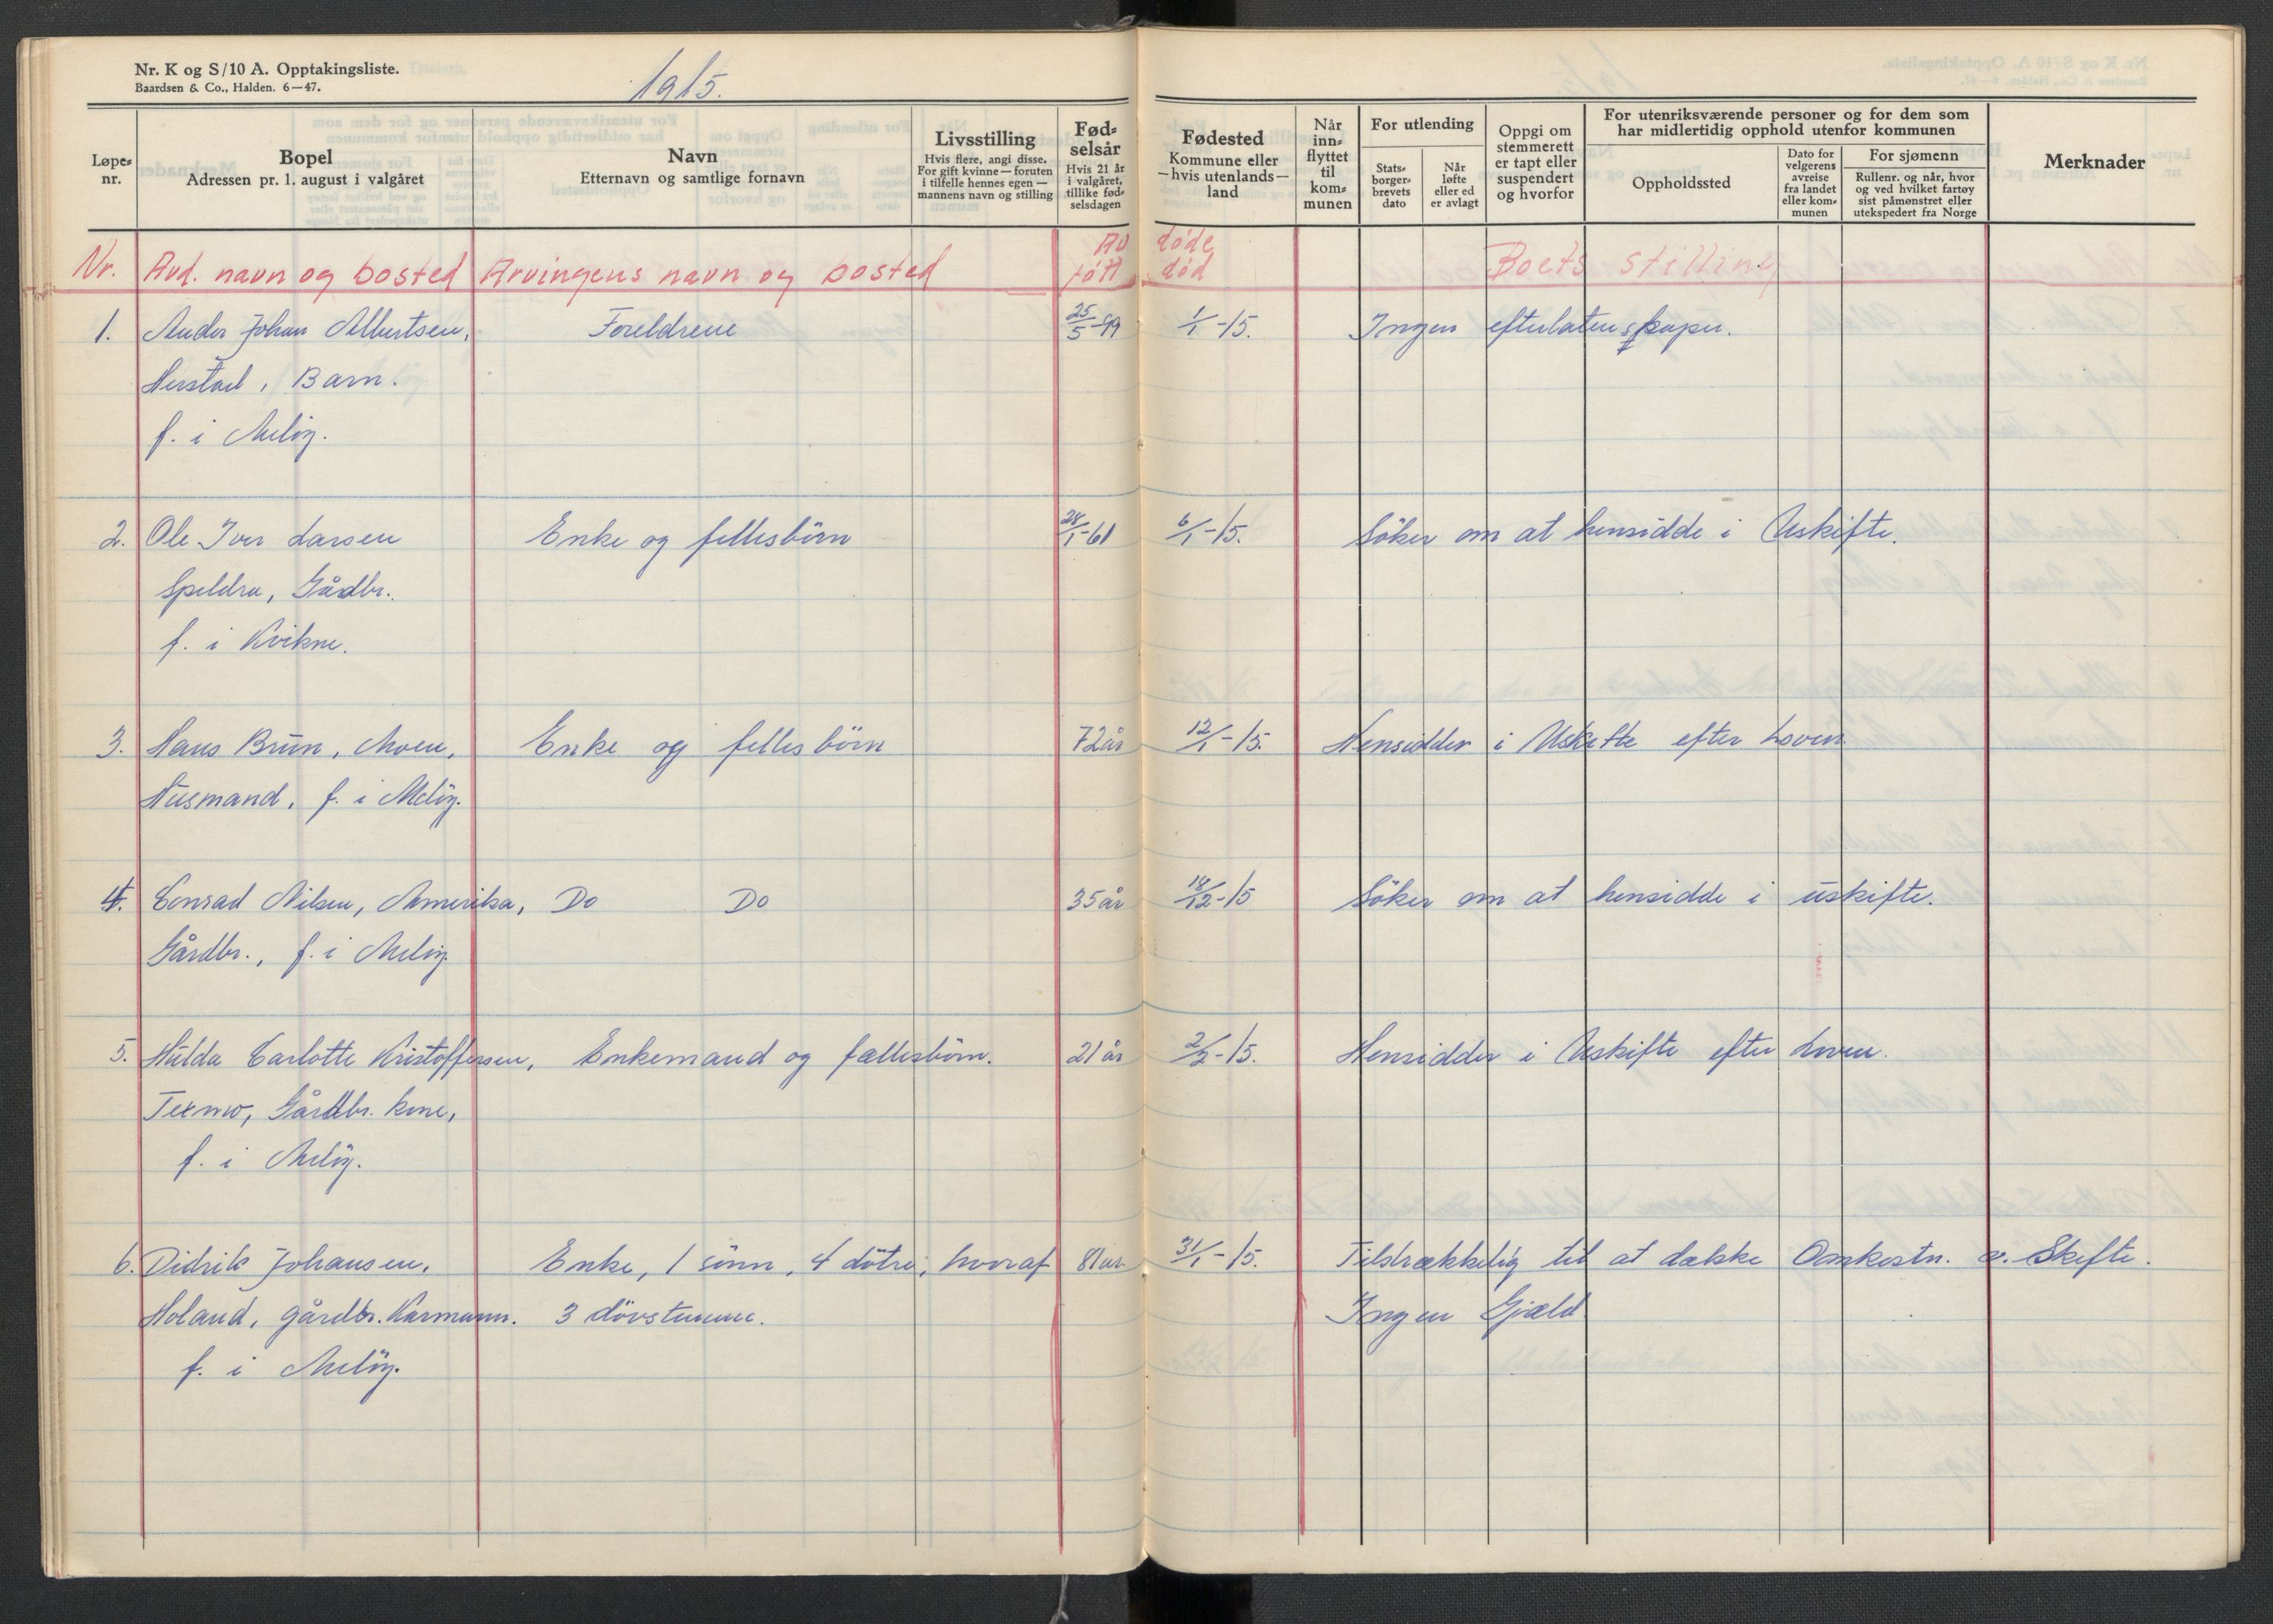 Nr. K og S/10 A. Opptakingsliste.
Baardsen & Co., Halden. 6—47.
1915.
Løpe-nr.
Bopel
Adressen pr. 1. august i valgåret
Navn
Etternavn og samtlige fornavn
Livsstilling
Hvis flere, angi disse.
For gift kvinne — foruten
i tilfelle hennes egen —
mannens navn og stilling
Fød-
selsår
Hvis 21 år
i valgåret,
tillike fød-
selsdagen
Fødested
Kommune eller
— hvis utenlands —
land
Når
inn-
flyttet
til
kom-
munen
For utlending
Stats-
borger-
brevets
dato
Når
løfte
eller ed
er avlagt
Oppgi om
stemmerett
er tapt eller
suspendert
og hvorfor
For utenriksværende personer og for dem som
har midlertidig opphold utenfor kommunen
Oppholdssted
Dato for
velgerens
avreise
fra landet
eller kom-
munen
For sjømenn
Rullenr. og når, hvor
og ved hvilket fartøy
sist påmønstret eller
utekspedert fra Norge
Merknader
Av døde
Nr. Avd. navn og bosted Arvingens navn og bosted født død Boets stilling
1. Ander Johan Albertsen, Foreldrene 25/5-99 1/1-15. Ingen efterlatenskaper.
Herstad, Barn.
f. i Meløy.
2. Ole Iver Larsen Enke og fellesbörn 28/1-61 6/1-15. Söker om at hensidde i Uskifte.
Speldra, Gårdbr.
f. i Kvikne.
3. Hans Brun, Moen, Enke og felles börn 72 år 12/1-15. Hensidder i Uskifte efter Loven.
Husmand, f. i Meløy.
4. Conrad Nilsen, Amerika, Do Do 35 år 18/12-15 Söker om at hensidde i uskifte.
Gårdbr., f. i Meløy
5. Hulda Carlotte Kristoffersen, Enkemand og fællesbörn. 21 år 2/2-15. Hensidder i Uskifte efter Loven.
Texmo, Gårdbr. kone,
f. i Meløy.
6. Didrik Johansen, Enke, 1 sönn, 4 dötre, hvoraf 81 år 31/1-15. Tilstrækkelig til at dække Omkostn. v. Skifte.
Holand, gårdbr. Karmann. 3 dövstumme. Ingen Gjæld.
f. i Meløy.